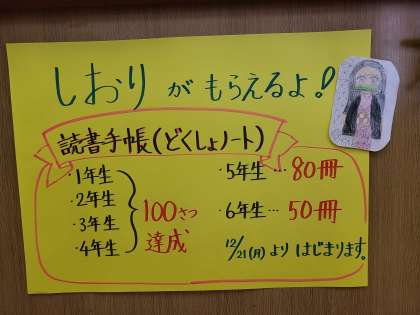 しおりがもらえるよ!
読書手帳(どくしょノート)
・1年生
・2年生
・3年生
・4年生
100さつ
達成
・5年生…80冊
・6年生…50冊
12/21(月)よりはじまります。